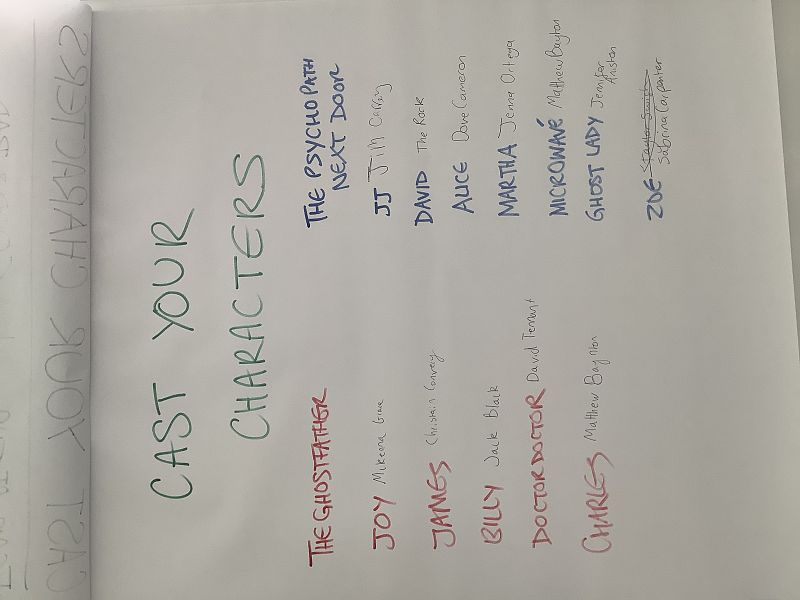 CAST YOUR
CHARACTERS
THE GHOSTFATHER
JOY Mikenna Grace
JAMES Christain Convery
BILLY Jack Black
DOCTOR DOCTOR David Tennant
CHARLES Matthew Baynton
THE PSYCHOPATH
NEXT DOOR
JJ Jim Carrey
DAVID The Rock
ALICE Dove Cameron
MARTHA Jenna Ortega
MICROWAVÉ Matthew Baynton
GHOST LADY Jennifer
Aniston
ZOE Staylor Swift
Sabrina Carpenter